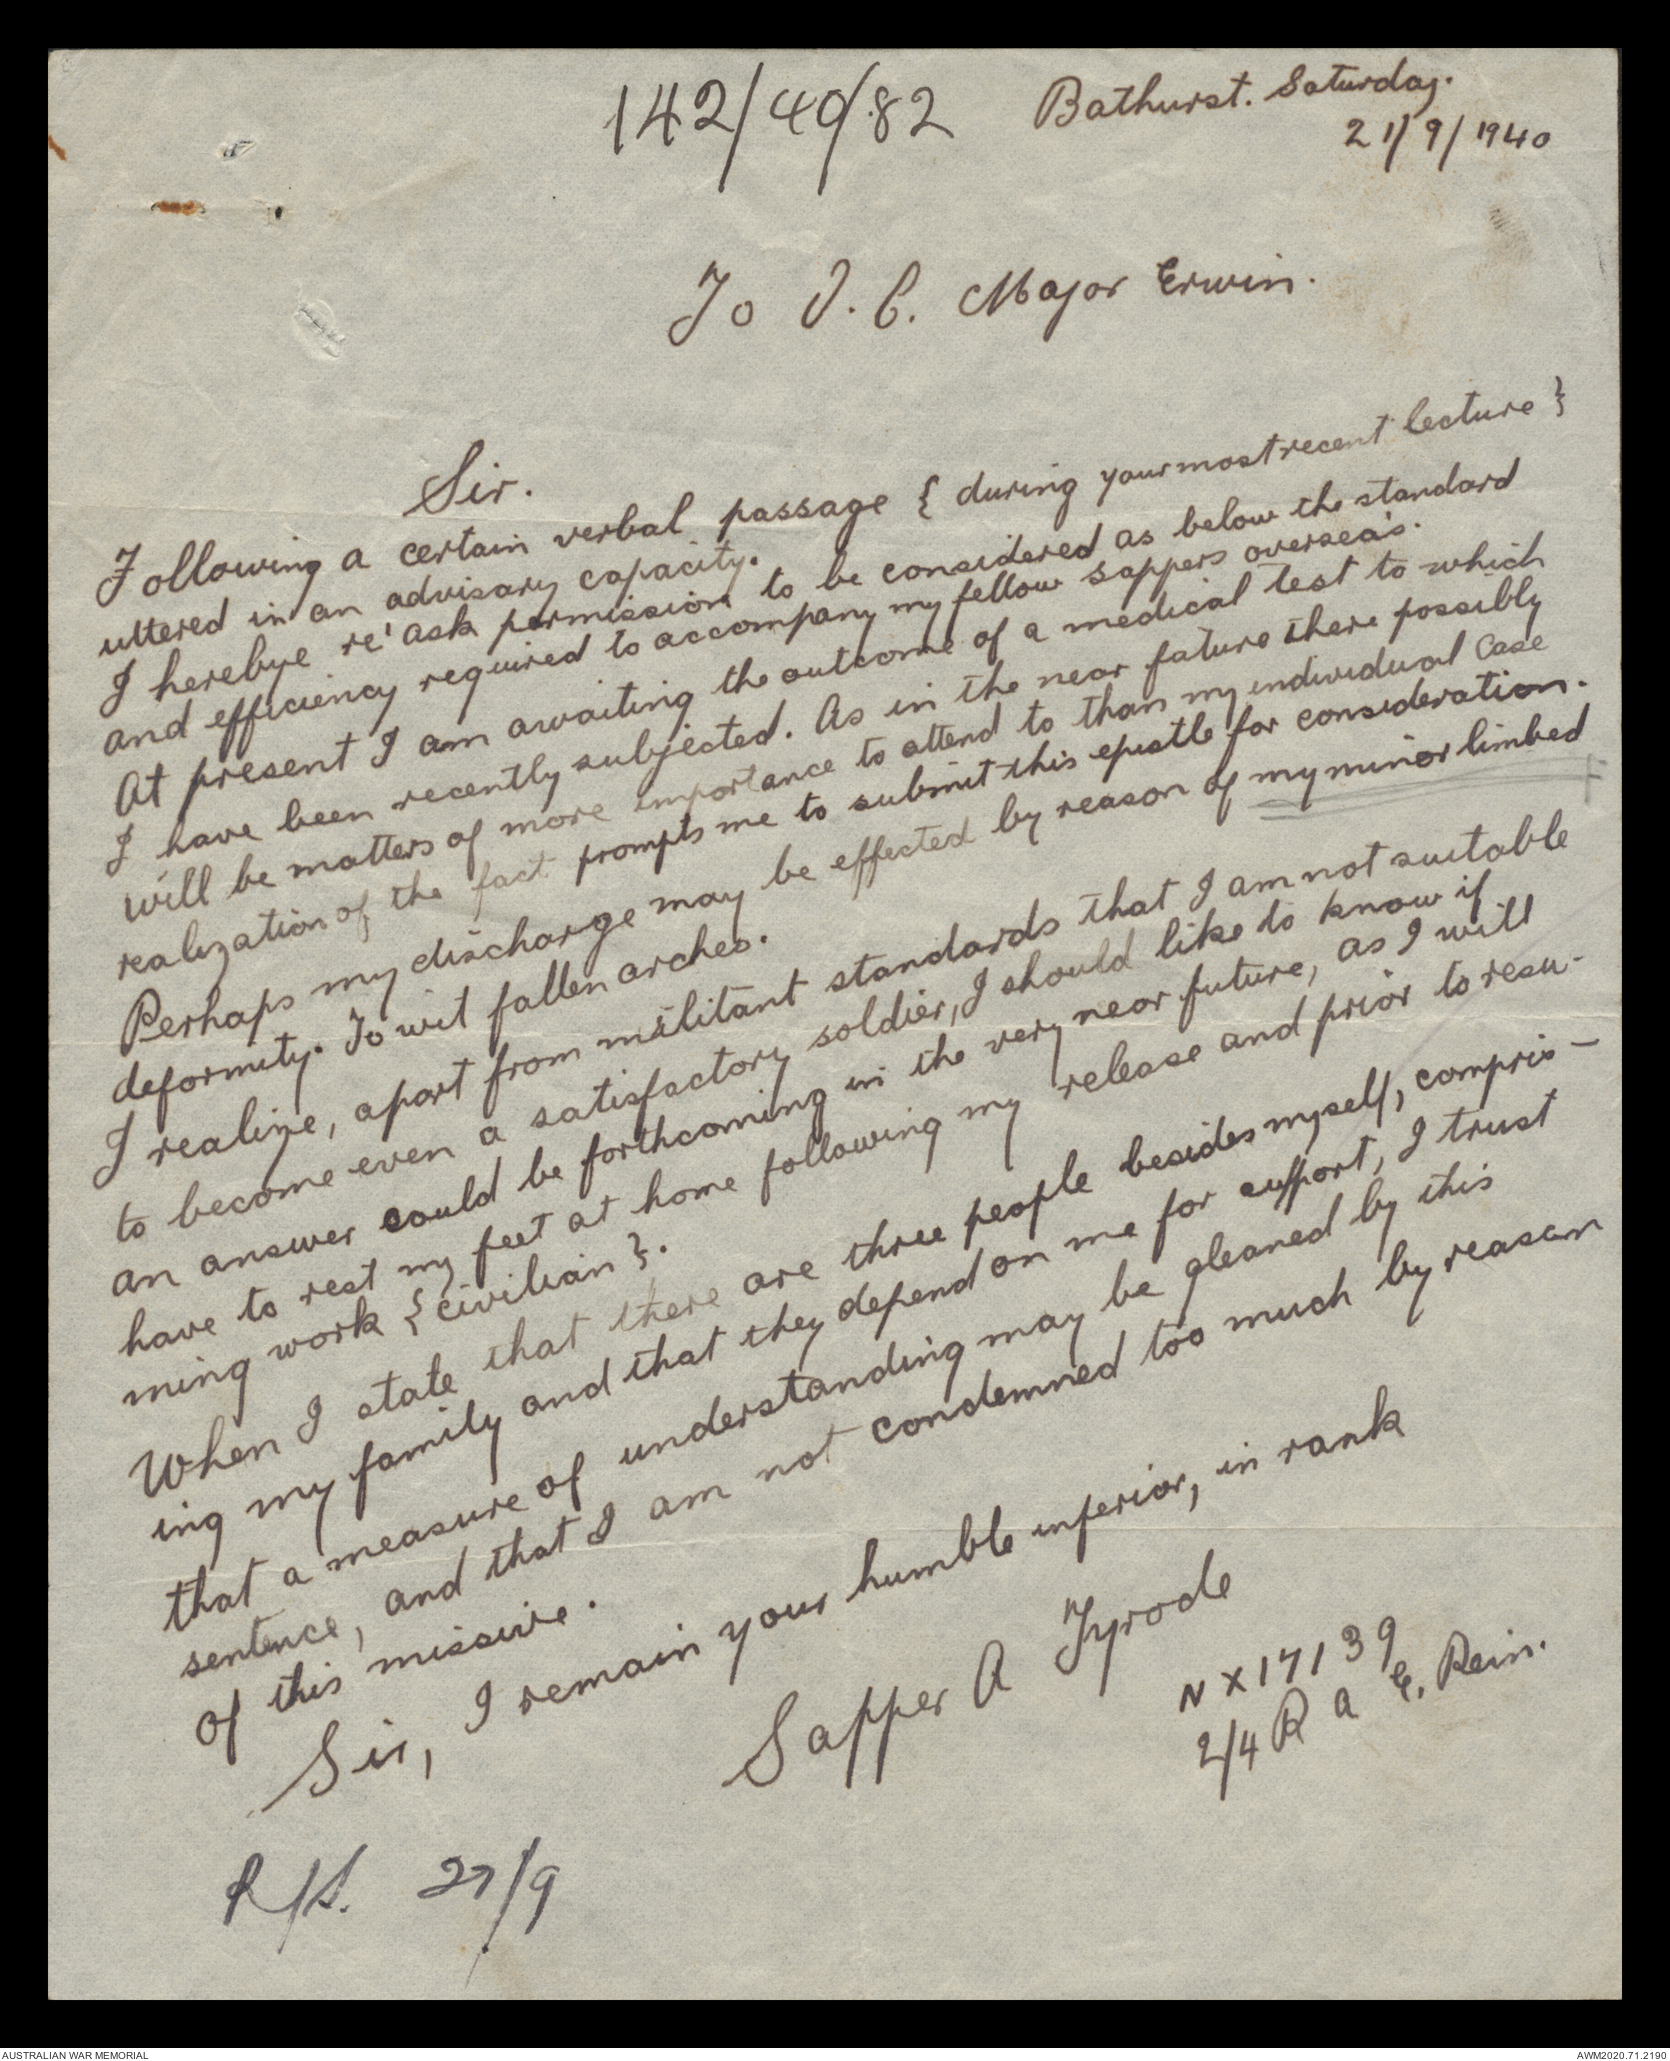 142/40/82
Bathurst. Saturday.
21/9/1940
To I. C. Major Erwin.
Sir.
Following a certain verbal passage { during your most recent lecture }
uttered in an advisary capacity.
I herebye re'ask permission to be considered as below the standard
and efficiency required to accompany my fellow sappers oversea's.
At present I am awaiting the outcome of a medical test to which
I have been recently subjected. As in the near future there possibly
will be matters of more importance to attend to than my individual case
realization of the fact prompts me to submit this epistle for consideration.
Perhaps my discharge may be effected by reason of my minor limbed
deformity. To wit fallen arches.
I realize, apart from militant standards that I am not suitable
to become even a satisfactory soldier, I should like to know if
an answer could be forthcoming in the very near future, as I will
have to rest my feet at home following my release and prior to resu-
ming work { civilian }.
When I state that there are three people besides myself, compris-
ing my family and that they depend on me for support, I trust
that a measure of understanding may be gleaned by this
sentence, and that I am not condemned too much by reason
of this missive.
Sir, I remain your humble inferior, in rank
Sapper A Tyrode
NX17139
2/4 R A E. Rein.
R/S. 27/9
AUSTRALIAN WAR MEMORIAL
AWM2020.71.2190